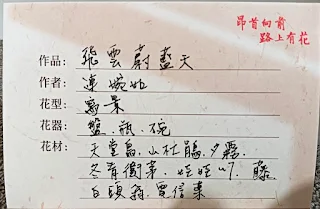 昂首向前
路上有花
作品: 飛雲蔚藍天
作者: 連婉如
花型: 寫景
花器: 盤、瓶、碗
花材: 天堂鳥、山杜鵑、夕霧、
冬青、藤
白頭翁、電信